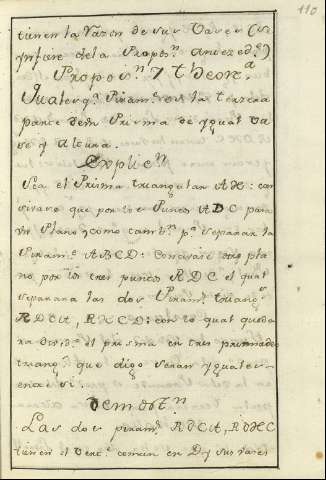 110
tienen la razon de sus Vases (se
infiere de la Propos.n anteced.te)
Propos.n 7 Theor.a
Qualesq.a Piram.e es la tercera
parte de un Prisma de ygual va
se y altura.
Explic.n
Sea el Prisma triangular AH: con
sivase que por los Puntos ADC pasa
un Plano, como tamb.n p.a separar la
Piram.e ABCD: Concivase otro pla
no, por los tres puntos RDC el qual
separara las dos Piram.s triang.s
RDCA, RHCD: con lo qual queda
ra divid.o el prisma en tres piramides
triang.s que digo seran yguales
entre si.
Demost.n
Las dos piram.s RDCA, RDHC
tienen el vert.e comun en D, y sus vases